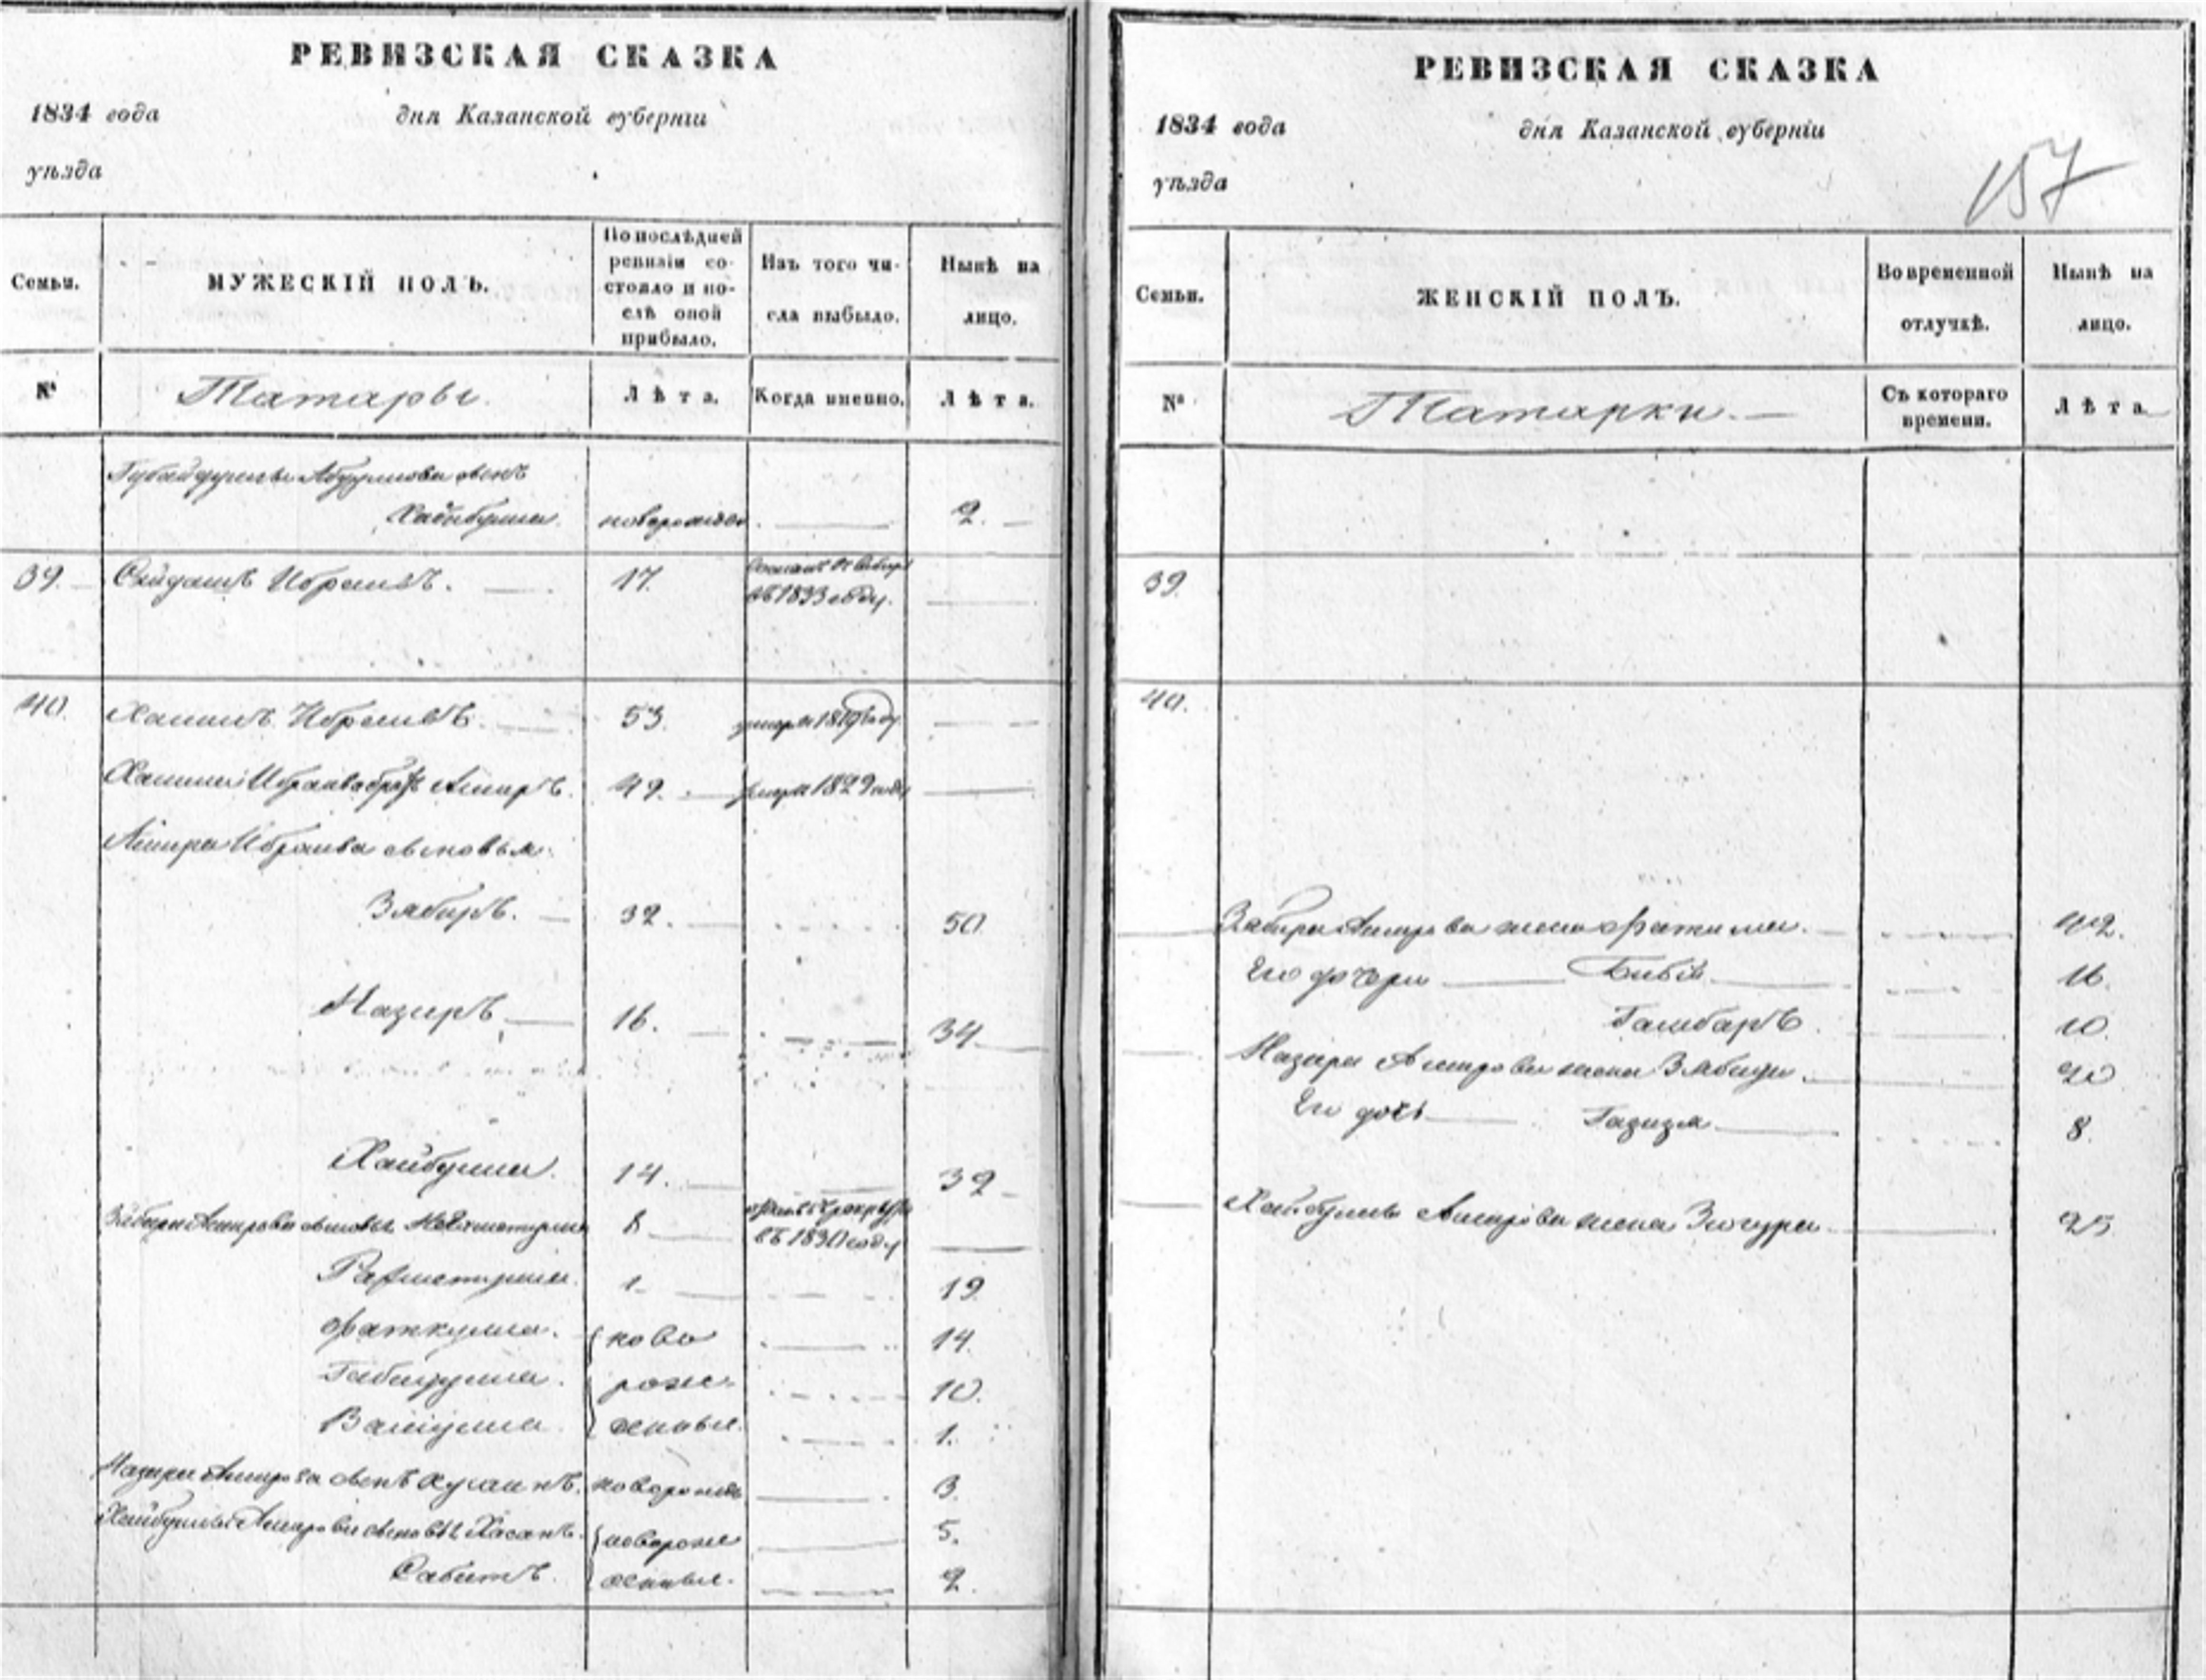 РЕВИЗСКАЯ СКАЗКА
1834 года дня Казанской губерніи
уѣзда
Семьи.
МУЖЕСКІЙ ПОЛЪ.
По послѣдней ревизіи состояло и послѣ оной прибыло.
Изъ того числа выбыло.
Нынѣ на лицо.
№
Татары.
Лѣта.
Когда именно.
Лѣта.
сынъ
Хабибулла новорожден 2.
39. Сейдашъ Ибраевъ. 17.
въ 1833 году.
40. Ибраевъ. 53. году.
братъ Амиръ. 49. 1829 году
Амира Ибраева сыновья:
Забиръ. 32. 50
Назиръ 16. 34
Хайбулла. 14. 32
Забира Амирова сыновья 8
въ 1830 году
1. 19
Фаткулла. ново 14.
рож- 10.
денные. 1.
Назира Амирова сынъ новорожд 3.
Хайбуллы Амирова сыновья Хасанъ. новорож 5.
Сабитъ. денные. 2.
РЕВИЗСКАЯ СКАЗКА
1834 года дня Казанской губерніи
уѣзда
157
Семьи.
ЖЕНСКІЙ ПОЛЪ.
Во временной отлучкѣ.
Нынѣ на лицо.
№
Татарки.
Съ котораго времени.
Лѣта
39.
40.
Забира Амирова жена Фатима. 42.
Его дочери Биби 16.
10.
Назира Амирова жена 20
Его дочь Газиза 8.
Хайбуллы Амирова жена 25